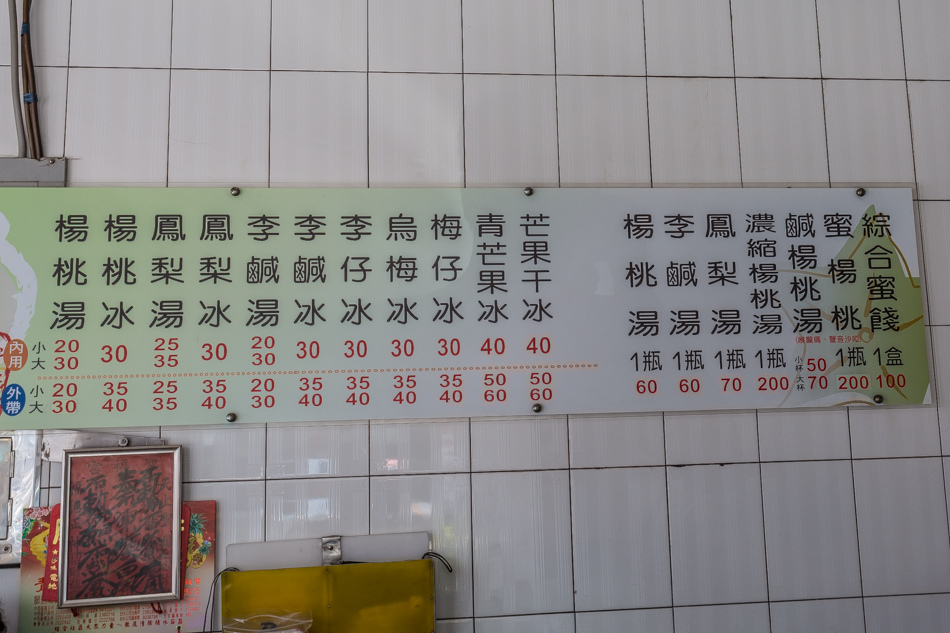 楊桃湯
楊桃冰
鳳梨湯
鳳梨冰
李鹹湯
李鹹冰
李仔冰
烏梅冰
梅仔冰
青芒果冰
芒果干冰
楊桃湯
李鹹湯
鳳梨湯
濃縮楊桃湯
鹹楊桃湯
蜜楊桃
綜合蜜餞
內用 小 大 20 30 30 25 35 30 20 30 30 30 30 30 40 40
外帶 小 大 20 30 35 40 25 35 35 40 20 30 35 40 35 40 35 40 35 40 50 60 50 60
1瓶 60
1瓶 60
1瓶 70
1瓶 200
小杯 50
大杯 70
1瓶 200
1盒 100